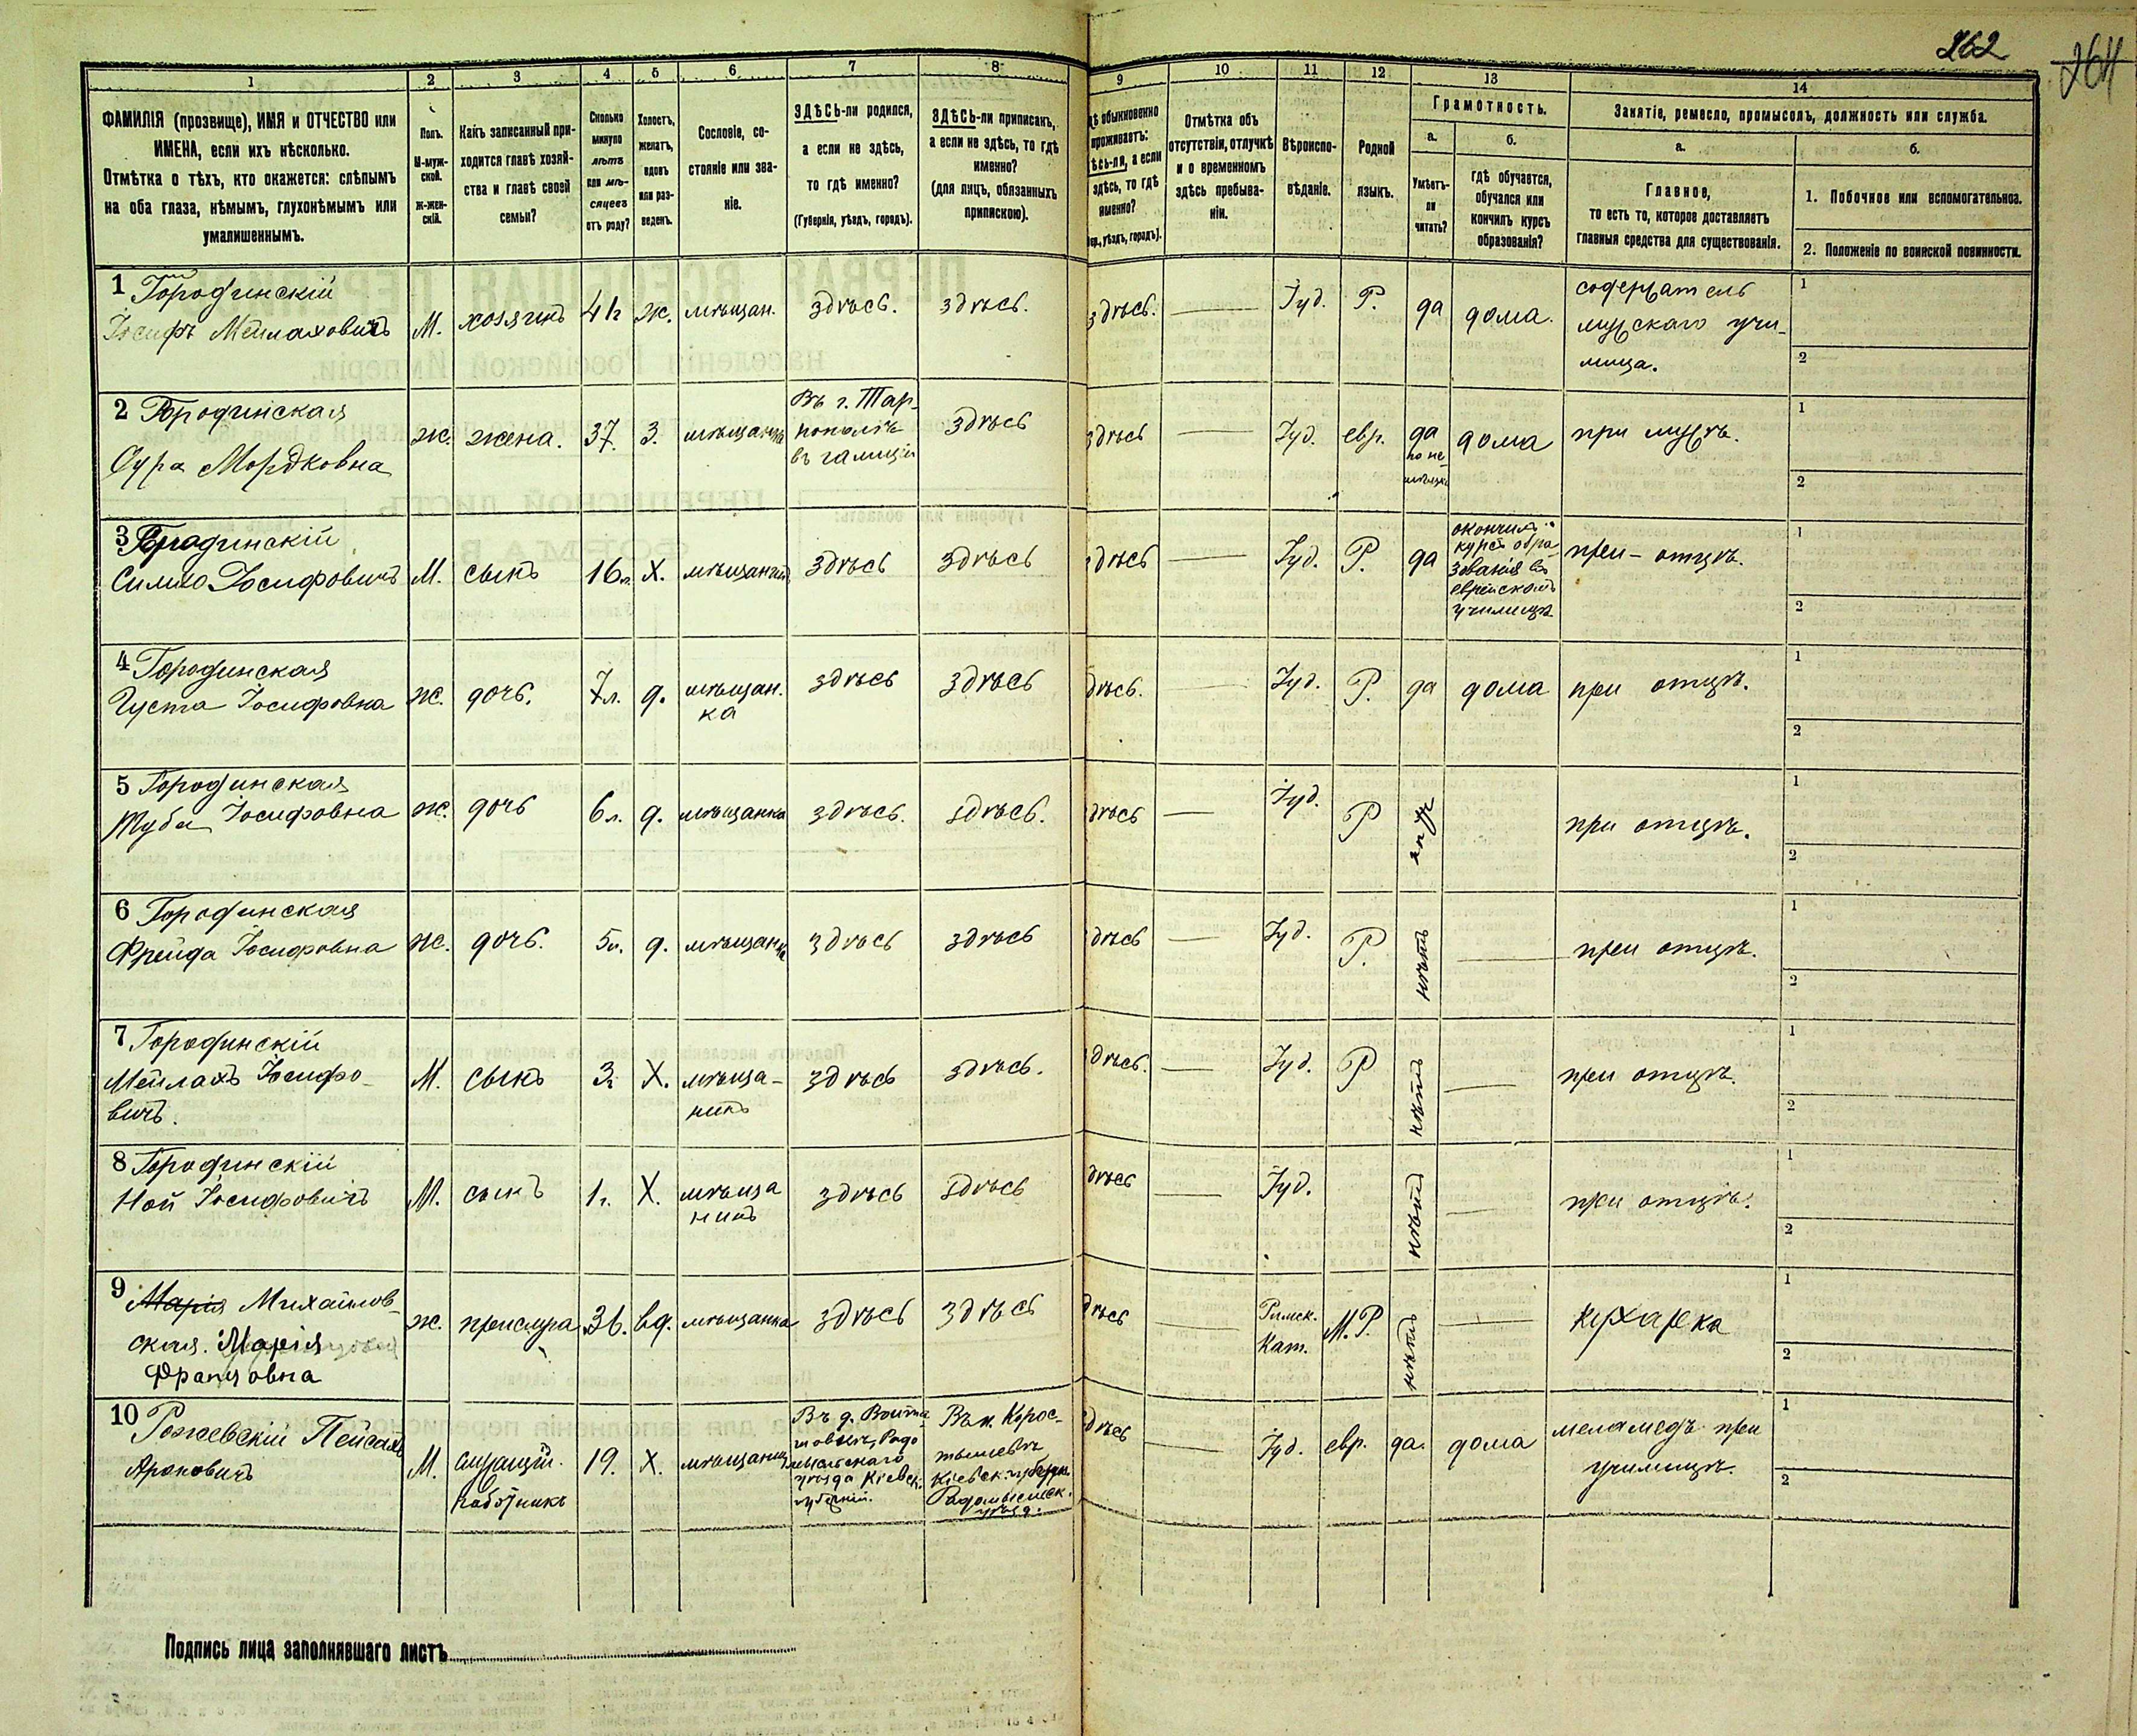 262
264
1 2 3 4 5 6 7 8 9 10 11 12 13 14
ФАМИЛІЯ (прозвище), ИМЯ и ОТЧЕСТВО или
ИМЕНА, если ихъ нѣсколько.
Отмѣтка о тѣхъ, кто окажется: слѣпымъ
на оба глаза, нѣмымъ, глухонѣмымъ или
умалишеннымъ.
Полъ.
М-муж-
ской.
ж-жен-
скій.
Какъ записанный при-
ходится главѣ хозяй-
ства и главѣ своей
семьи?
Сколько
минуло
лѣтъ
или мѣ-
сяцевъ
отъ роду?
Холостъ,
женатъ,
вдовъ
или раз-
веденъ.
Сословіе, со-
стояніе или зва-
ніе.
ЗДѢСЬ-ли родился,
а если не здѣсь,
то гдѣ именно?
(Губернія, уѣздъ, городъ).
ЗДѢСЬ-ли приписанъ,
а если не здѣсь, то гдѣ
именно?
(для лицъ, обязанныхъ
припискою).
дѣ обыкновенно
проживаетъ:
ѣсь-ли, а если
здѣсь, то гдѣ
именно?
ер., уѣздъ, городъ).
Отмѣтка объ
отсутствіи, отлучкѣ
и о временномъ
здѣсь пребыва-
ніи.
Вѣроиспо-
вѣданіе.
Родной
языкъ.
Грамотность.
а.
Умѣетъ-
ли
читать?
б.
гдѣ обучается,
обучался или
кончилъ курсъ
образованія?
Занятіе, ремесло, промыселъ, должность или служба.
а.
Главное,
то есть то, которое доставляетъ
главныя средства для существованія.
б.
1. Побочное или вспомогательное.
2. Положеніе по воинской повинности.
1 Городинскій
Іосифъ Мейлаховичъ
М. хозяинъ ж. мѣщан. здѣсь. здѣсь. здѣсь. Іуд. Р. да дома.
содержатель
мужскаго учи-
лища.
1
2
2 Городинская
Сура Мордковна
ж. жена. 37. З.
Въ г. Тар-
нополѣ
въ галиціи
здѣсь
здѣсь Іуд. евр.
да
по не-
дома при мужѣ.
1
2
3 Городинскій
Іосифовичъ
М. сынъ 16л. Х. мѣщанинъ здѣсь здѣсь здѣсь Іуд. Р. да
окончилъ
курсъ обра-
зованія въ
еврейскомъ
училищѣ
при отцѣ.
1
2
4 Городинская
Густа Іосифовна
ж. дочь. 7л. д.
мѣщан.
ка
здѣсь здѣсь здѣсь. Іуд. Р. да дома при отцѣ.
1
2
5 Городинская
Туба Іосифовна
ж. дочь 6л. д. мѣщанка здѣсь. здѣсь. здѣсь Іуд. Р при отцѣ.
1
2
6 Городинская
Фрейда Іосифовна
ж. дочь. 5л. д. мѣщанка здѣсь здѣсь здѣсь Іуд. Р. нѣтъ при отцѣ.
1
2
7 Городинскій
Мейлахъ Іосифо-
вичъ.
М. сынъ 3г. Х.
мѣща-
нинъ
здѣсь здѣсь. здѣсь. Іуд. Р нѣтъ при отцѣ.
1
2
8 Городинскій
Ной Іосифовичъ
М. сынъ 1г. Х.
мѣща
нинъ
здѣсь здѣсь здѣсь Іуд. нѣтъ при отцѣ.
1
2
9 Марія Михайлов-
ская. Марія
Францовна
ж. прислуга 36. вд. мѣщанка здѣсь здѣсь здѣсь
Римск.
Кат.
М.Р. нѣтъ кухарка
1
2
10 Рожевскій Пейсахъ
Ароновичъ
М.
служащій.
работникъ
19. Х. мѣщанинъ
Радо
мысльскаго
уѣзда Кіевск.
губерніи.
Въ м. Корос-
тышевѣ
Кіевск. губерн.
Радомысльск.
уѣзд.
здѣсь Іуд. евр. да. дома
меламедъ при
училищѣ.
1
2
Подпись лица заполнявшаго листъ